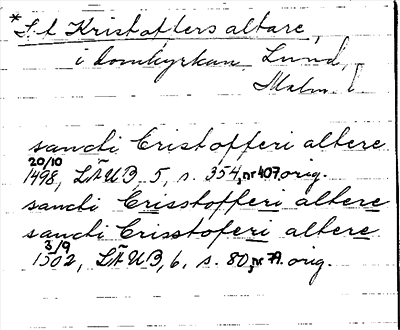 *S:t Kristoffers altare,
i domkyrkan, Lund,
Malm. l.
sancti Cristofferi altere
20/10
1498, LÄUB, 5, s. 354, nr 407 orig.
sancti Crisstofferi altere
sancti Crisstoferi altere
3/9
1502, LÄUB, 6, s. 80, nr 79. orig.